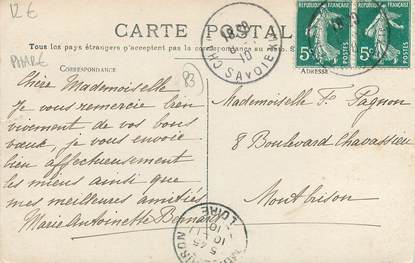 12 €
CARTE POSTALE
Tous les pays étrangers n'acceptent pas la correspondance au
CORRESPONDANCE
ADRESSE
RÉPUBLIQUE FRANÇAISE
5c
POSTES
5c
POSTES
SAVOIE
83
Chère Mademoiselle
Je vous remercie bien
vivement, de vos bons
vœux, je vous envoie
bien affectueusement
les miens ainsi que
mes meilleures amitiés
Marie Antoinette Bernard
Mademoiselle Fs. Pagnon
8 Boulevard Chavassieu
Montbrison
LOIRE
5 45
10